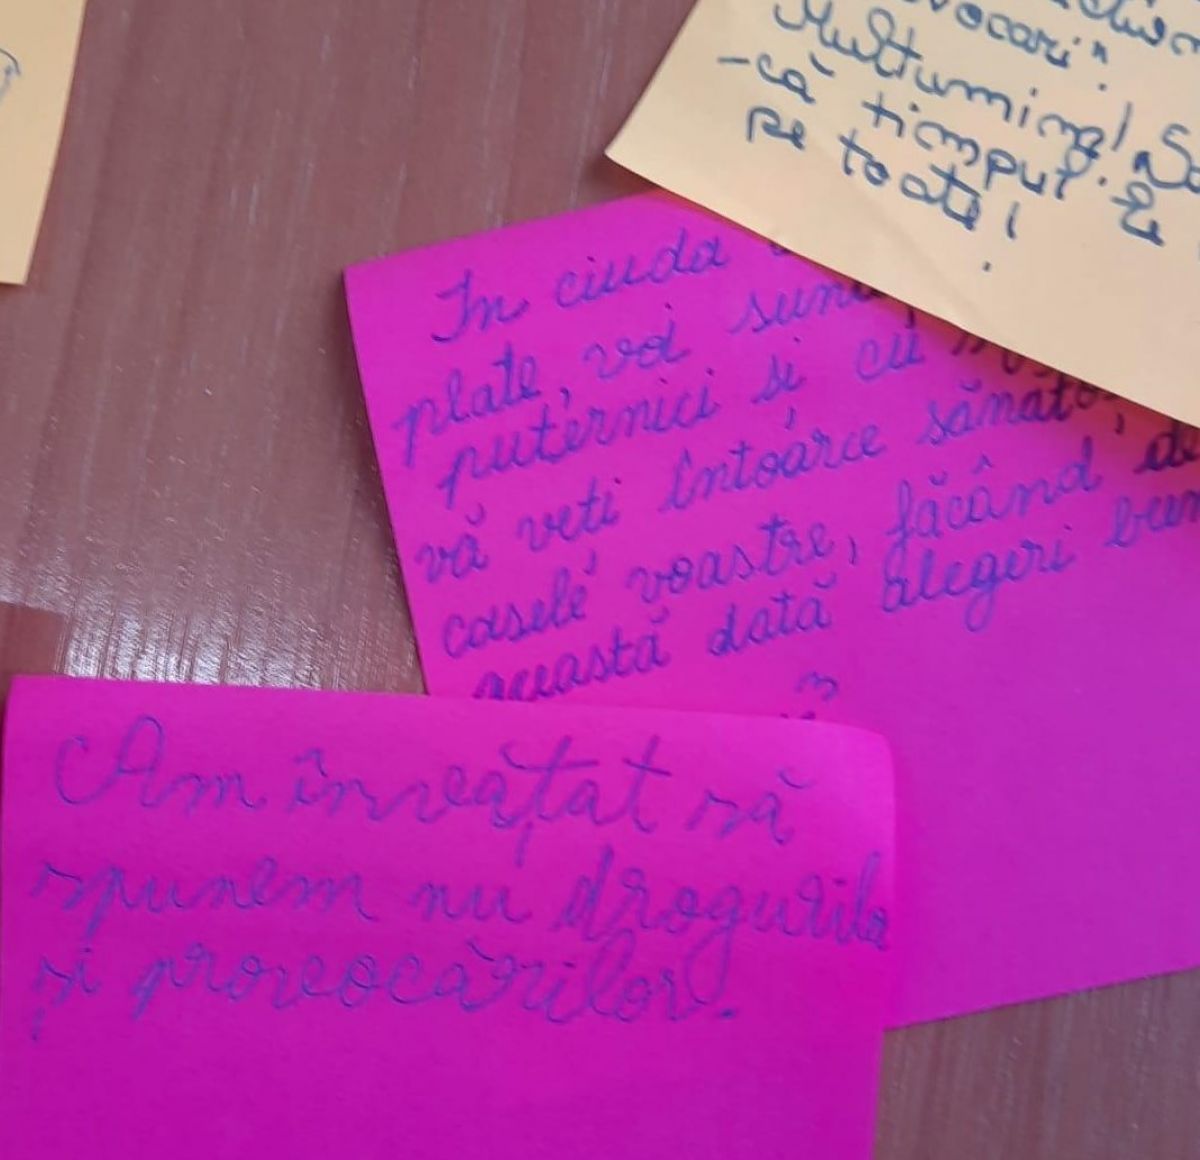 provocări".
Mulțumim! Să
-că timpul le
pe toate!
In ciuda
plate, voi
puternici și cu
vă veti întoarce
casele voastre, făcând de
această dată alegeri bun
Am învățat să
spunem nu drogurilo
și provocărilor.